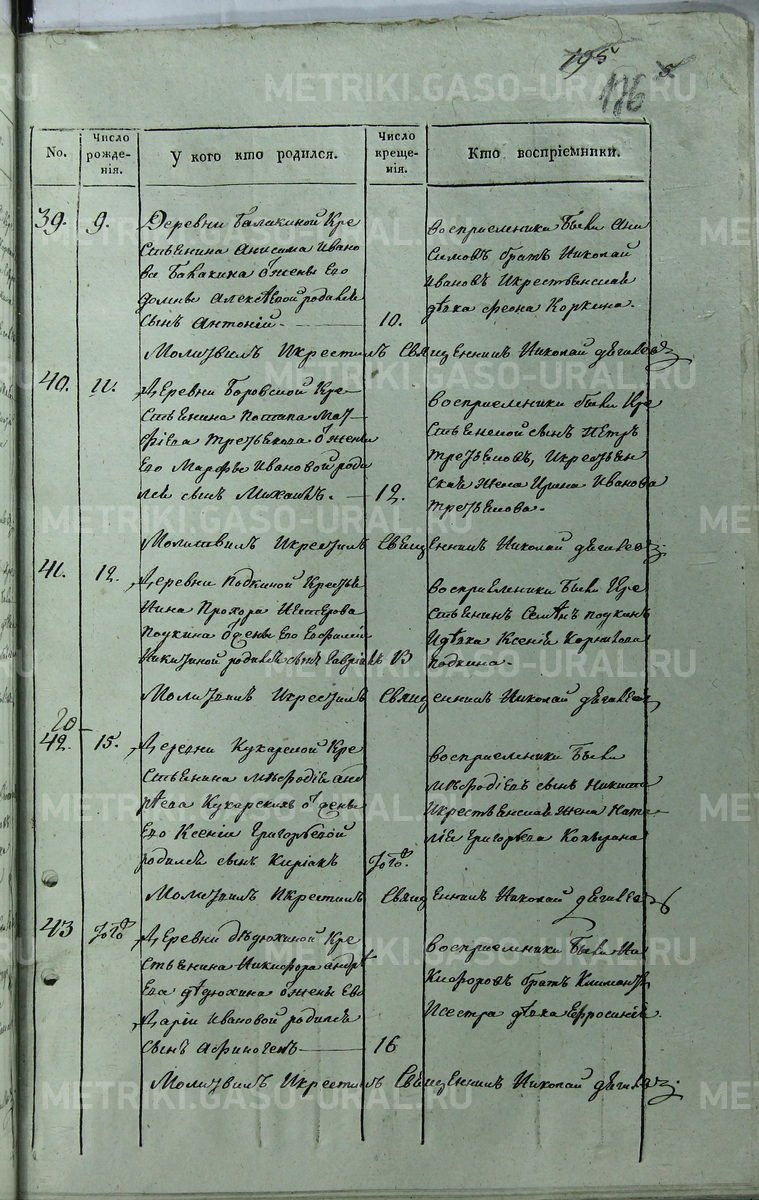 195
176
No.
Число рожде-
нія.
У кого кто родился.
Число креще-
нія.
Кто воспріемники.
39. 9. Деревни Балакиной Кре
стьянина Анисима Ивано
ва Бакакина ѿ жены Его
домны Алексѣевой родился
сынъ Антоній. 10.
Восприемники были Ани
симовъ братъ Николай
Ивановъ Икрестьянская
дѣвка Коркина.
Молитвилъ Икрестилъ Священникъ Николай
40. 11. Деревни Боровской Кре
стьянина Потапа Мат
фіева Третьякова ѿ жены
Его Марфы Ивановой роди
лся сынъ Михаилъ. 12.
Восприемники были Кре
сынъ Петръ
Третьяковъ, Икрестьян
ская жена Ирина Иванова
Третьякова.
Молитвилъ Икрестилъ Священникъ Николай
41. 12. Деревни Подкиной Крестья
нина Прохора
Подкина ѿ жены Его
Никитиной родился сынъ Гавріилъ 13
Восприемники были Кре
стьянинъ Семенъ Подкинъ
Идѣвка Ксенія Корнилова
Подкина.
Молитвилъ Икрестилъ Священникъ Николай
20
42. 15. Деревни Кухарской Кре
стьянина Меѳодія Анд
рѣева Кухарскихъ ѿ жены
Его Ксеніи Григорьевой
родился сынъ Киріакъ Того.
Восприемники были
Меѳодіевъ сынъ Никита
Икрестьянская жена Ната
лія Григорьева
Молитвилъ Икрестилъ Священникъ Николай
43 Того Деревни Дѣдюхиной Кре
стьянина Никифора Андрѣ
ева Дѣдюхина ѿ жены Его
Даріи Ивановой родился
сынъ Афиногенъ 16
Восприемники были Ни
кифоровъ братъ Климантъ
Исестра дѣвка Ефросинія.
Молитвилъ Икрестилъ Священникъ Николай
METRIKI.GASO-URAL.RU